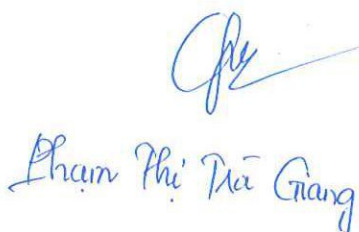 Phạm Thị Trà Giang